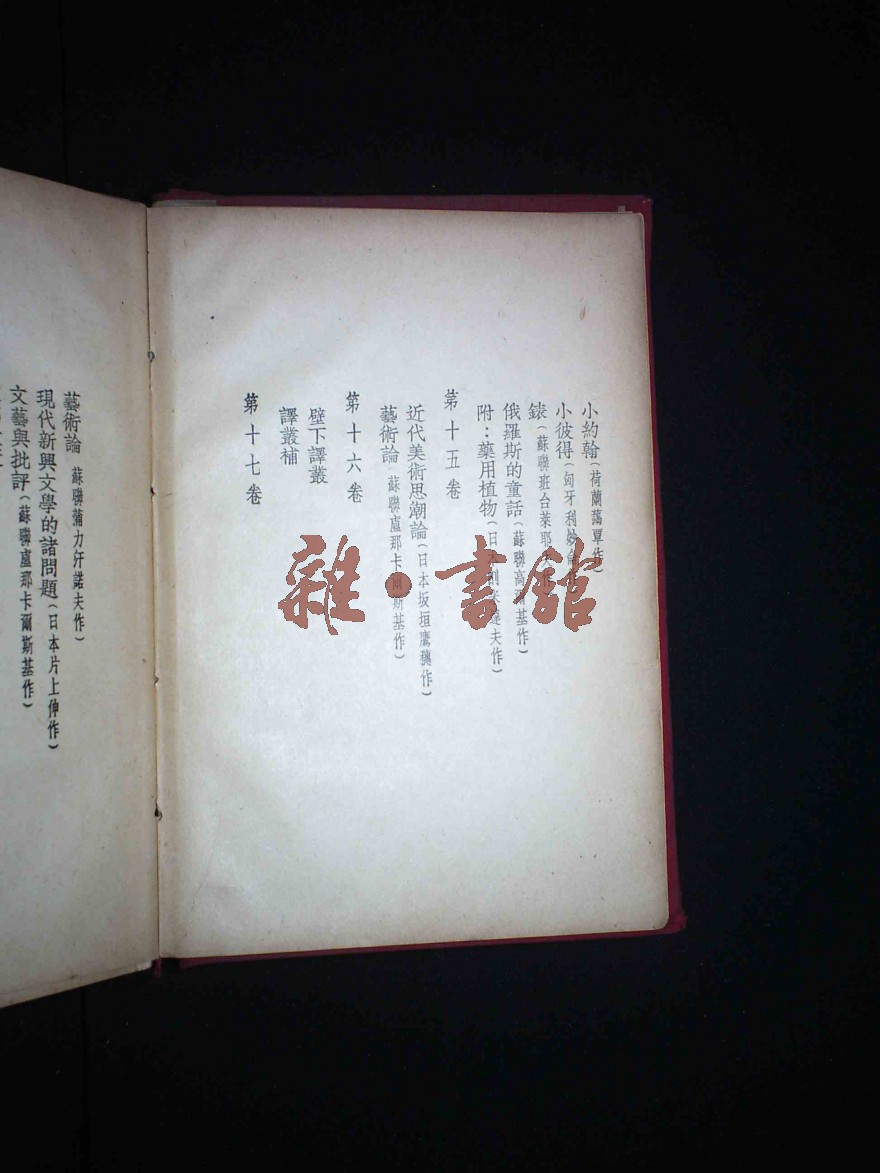 小約翰(荷蘭藹覃作)
小彼得(匈牙利妙倫作)
錶(蘇聯班台萊耶夫作)
俄羅斯的童話(蘇聯高爾基作)
附:藥用植物(日本刈米達夫作)
第十五卷
近代美術思潮論(日本坂垣鷹穗作)
藝術論(蘇聯盧那卡爾斯基作)
第十六卷
壁下譯叢
譯叢補
第十七卷
藝術論(蘇聯蒲力汗諾夫作)
現代新興文學的諸問題(日本片上伸作)
文藝與批評(蘇聯盧那卡爾斯基作)
雜·書館